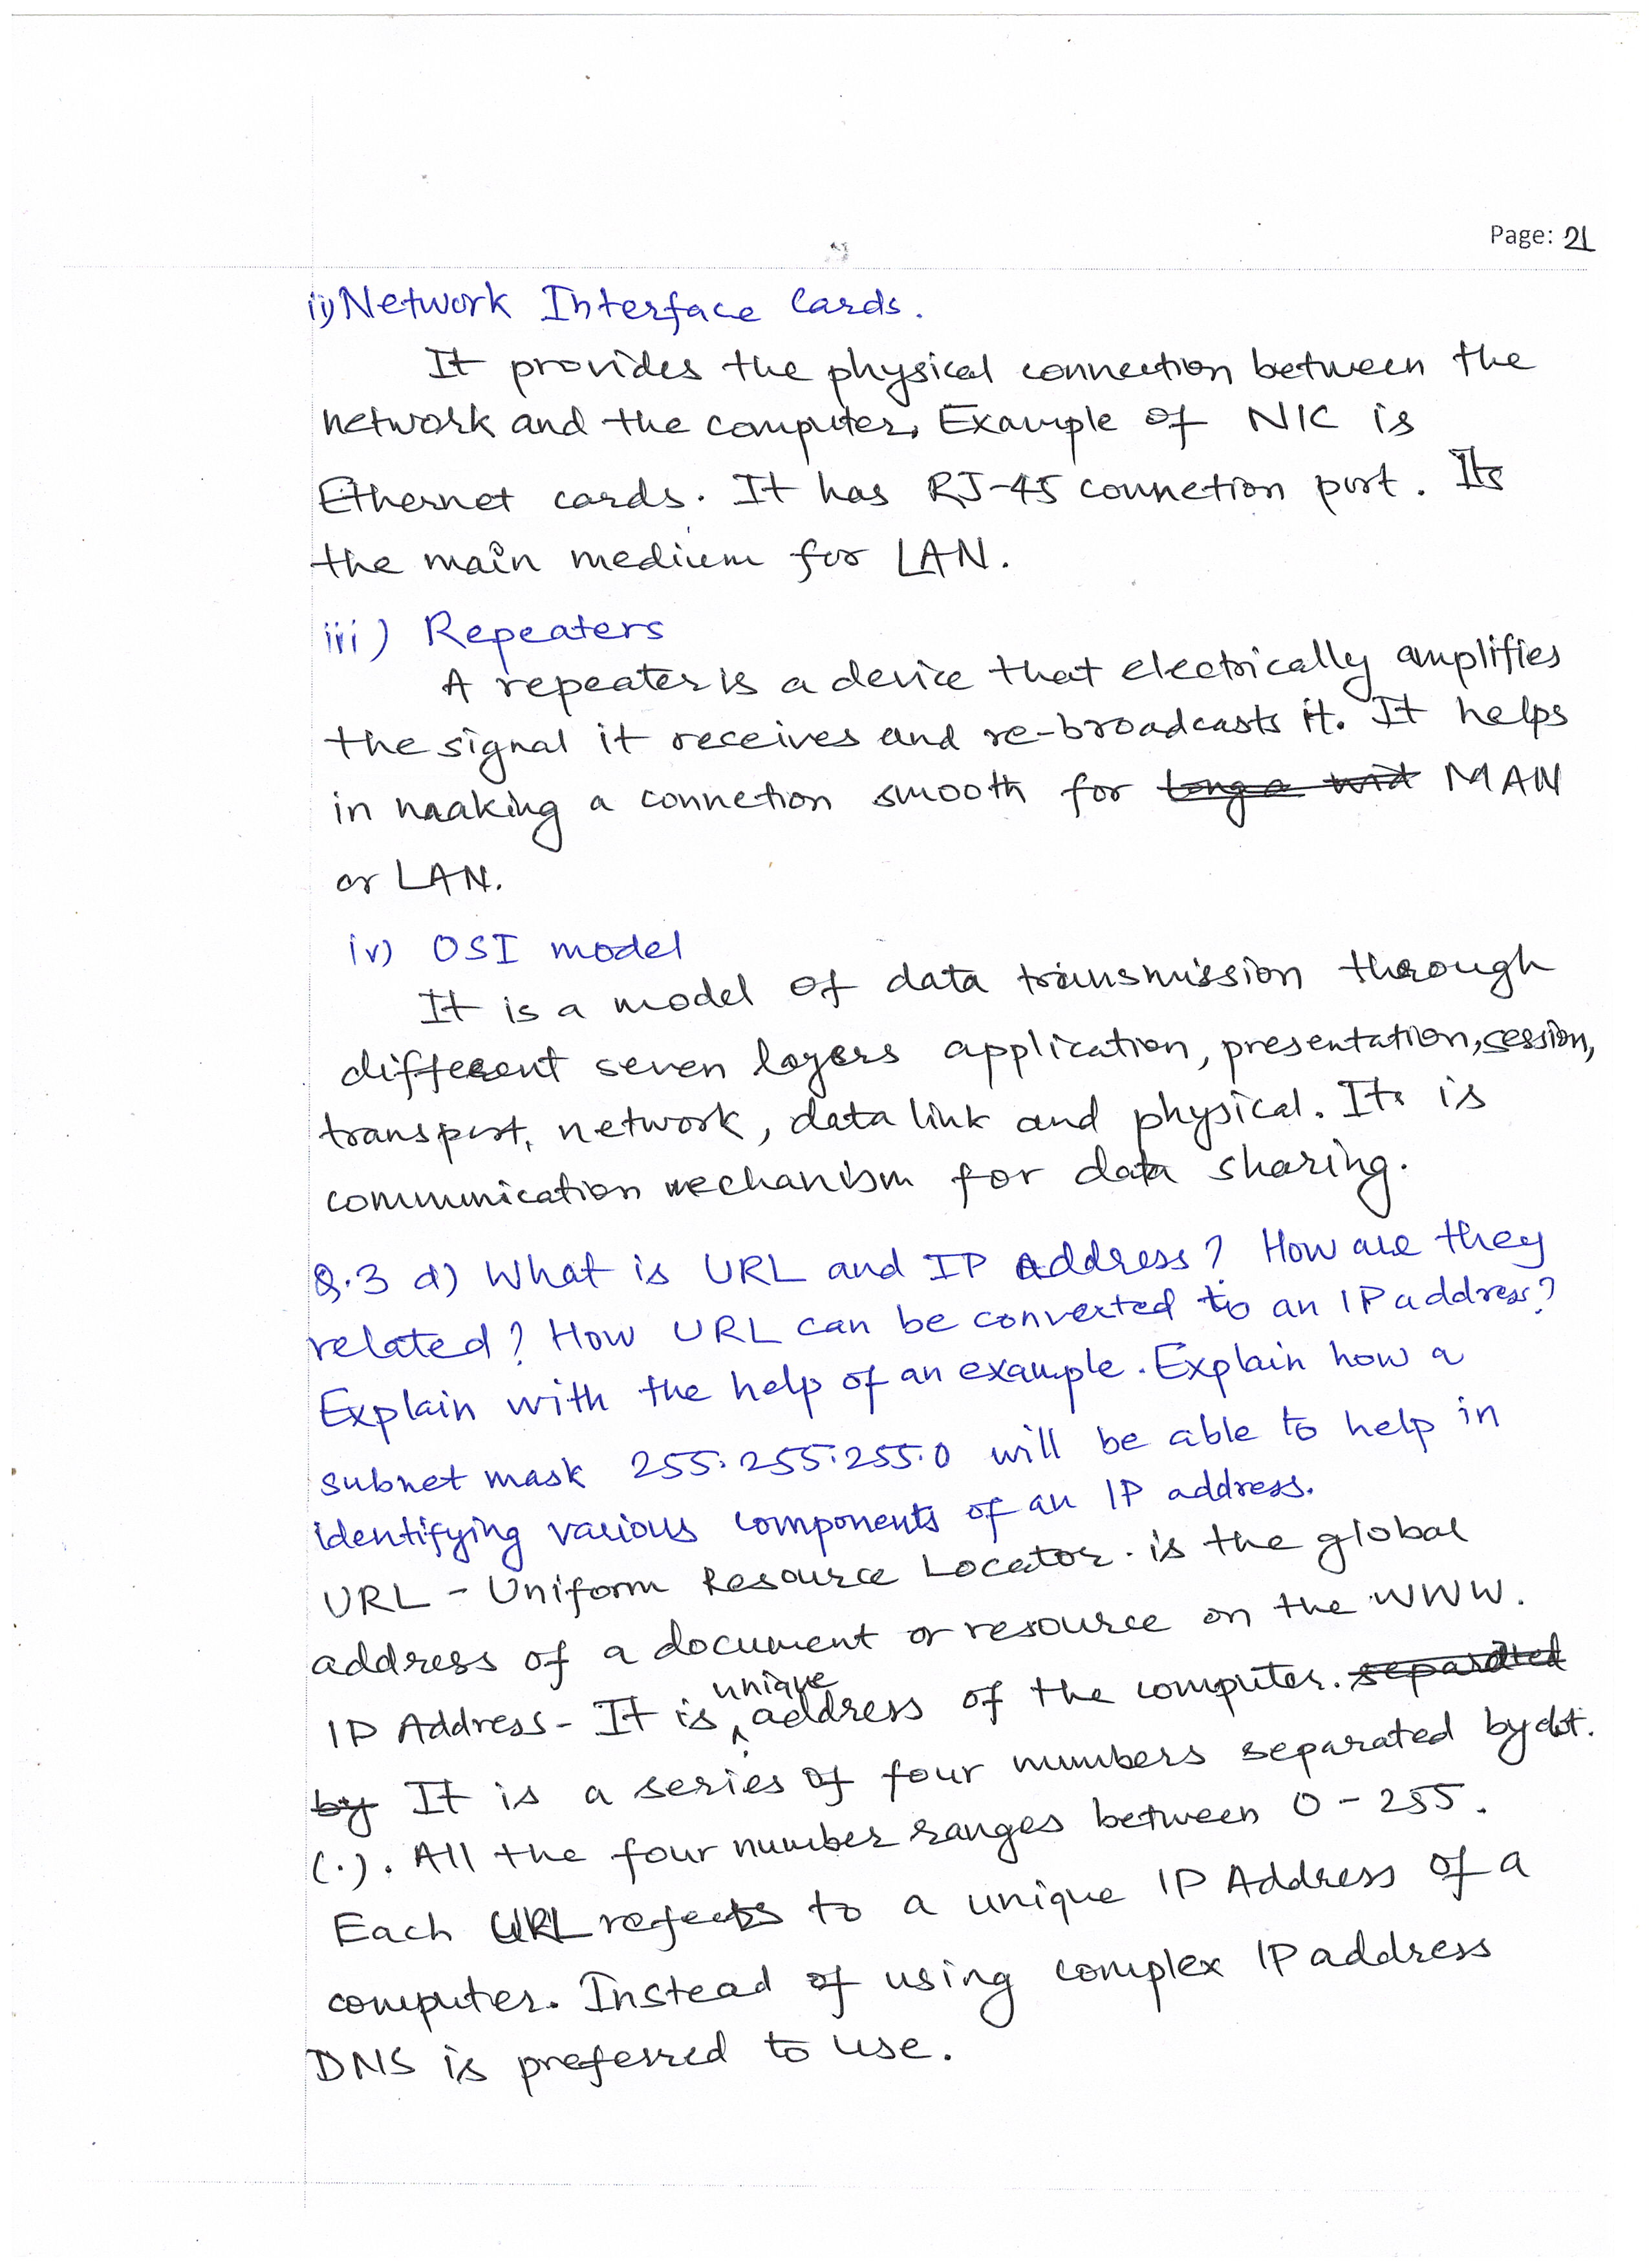 Page: 21
ii) Network Interface Cards.
It provides the physical connection between the
network and the computer, Example of NIC is
Ethernet cards. It has RJ-45 connetion port. Its
the main medium for LAN.
iii) Repeaters
A repeater is a device that electrically amplifies
the signal it receives and re-broadcasts it. It helps
in making a connetion smooth for ~~long a wid~~ MAN
or LAN.
iv) OSI model
It is a model of data transmission through
different seven layers application, presentation, session,
transport, network, data link and physical. Its is
communication mechanism for data sharing.
Q.3 d) What is URL and IP Address? How are they
related? How URL can be converted to an IP address?
Explain with the help of an example. Explain how a
subnet mask 255.255.255.0 will be able to help in
identifying various components of an IP address.
URL - Uniform Resource Locator. is the global
address of a document or resource on the WWW.
IP Address - It is unique address of the computer. ~~separated~~
~~by~~ It is a series of four numbers separated by dot.
(.). All the four number ranges between 0 - 255.
Each URL refects to a unique IP Address of a
computer. Instead of using complex IP address
DNS is preferred to use.